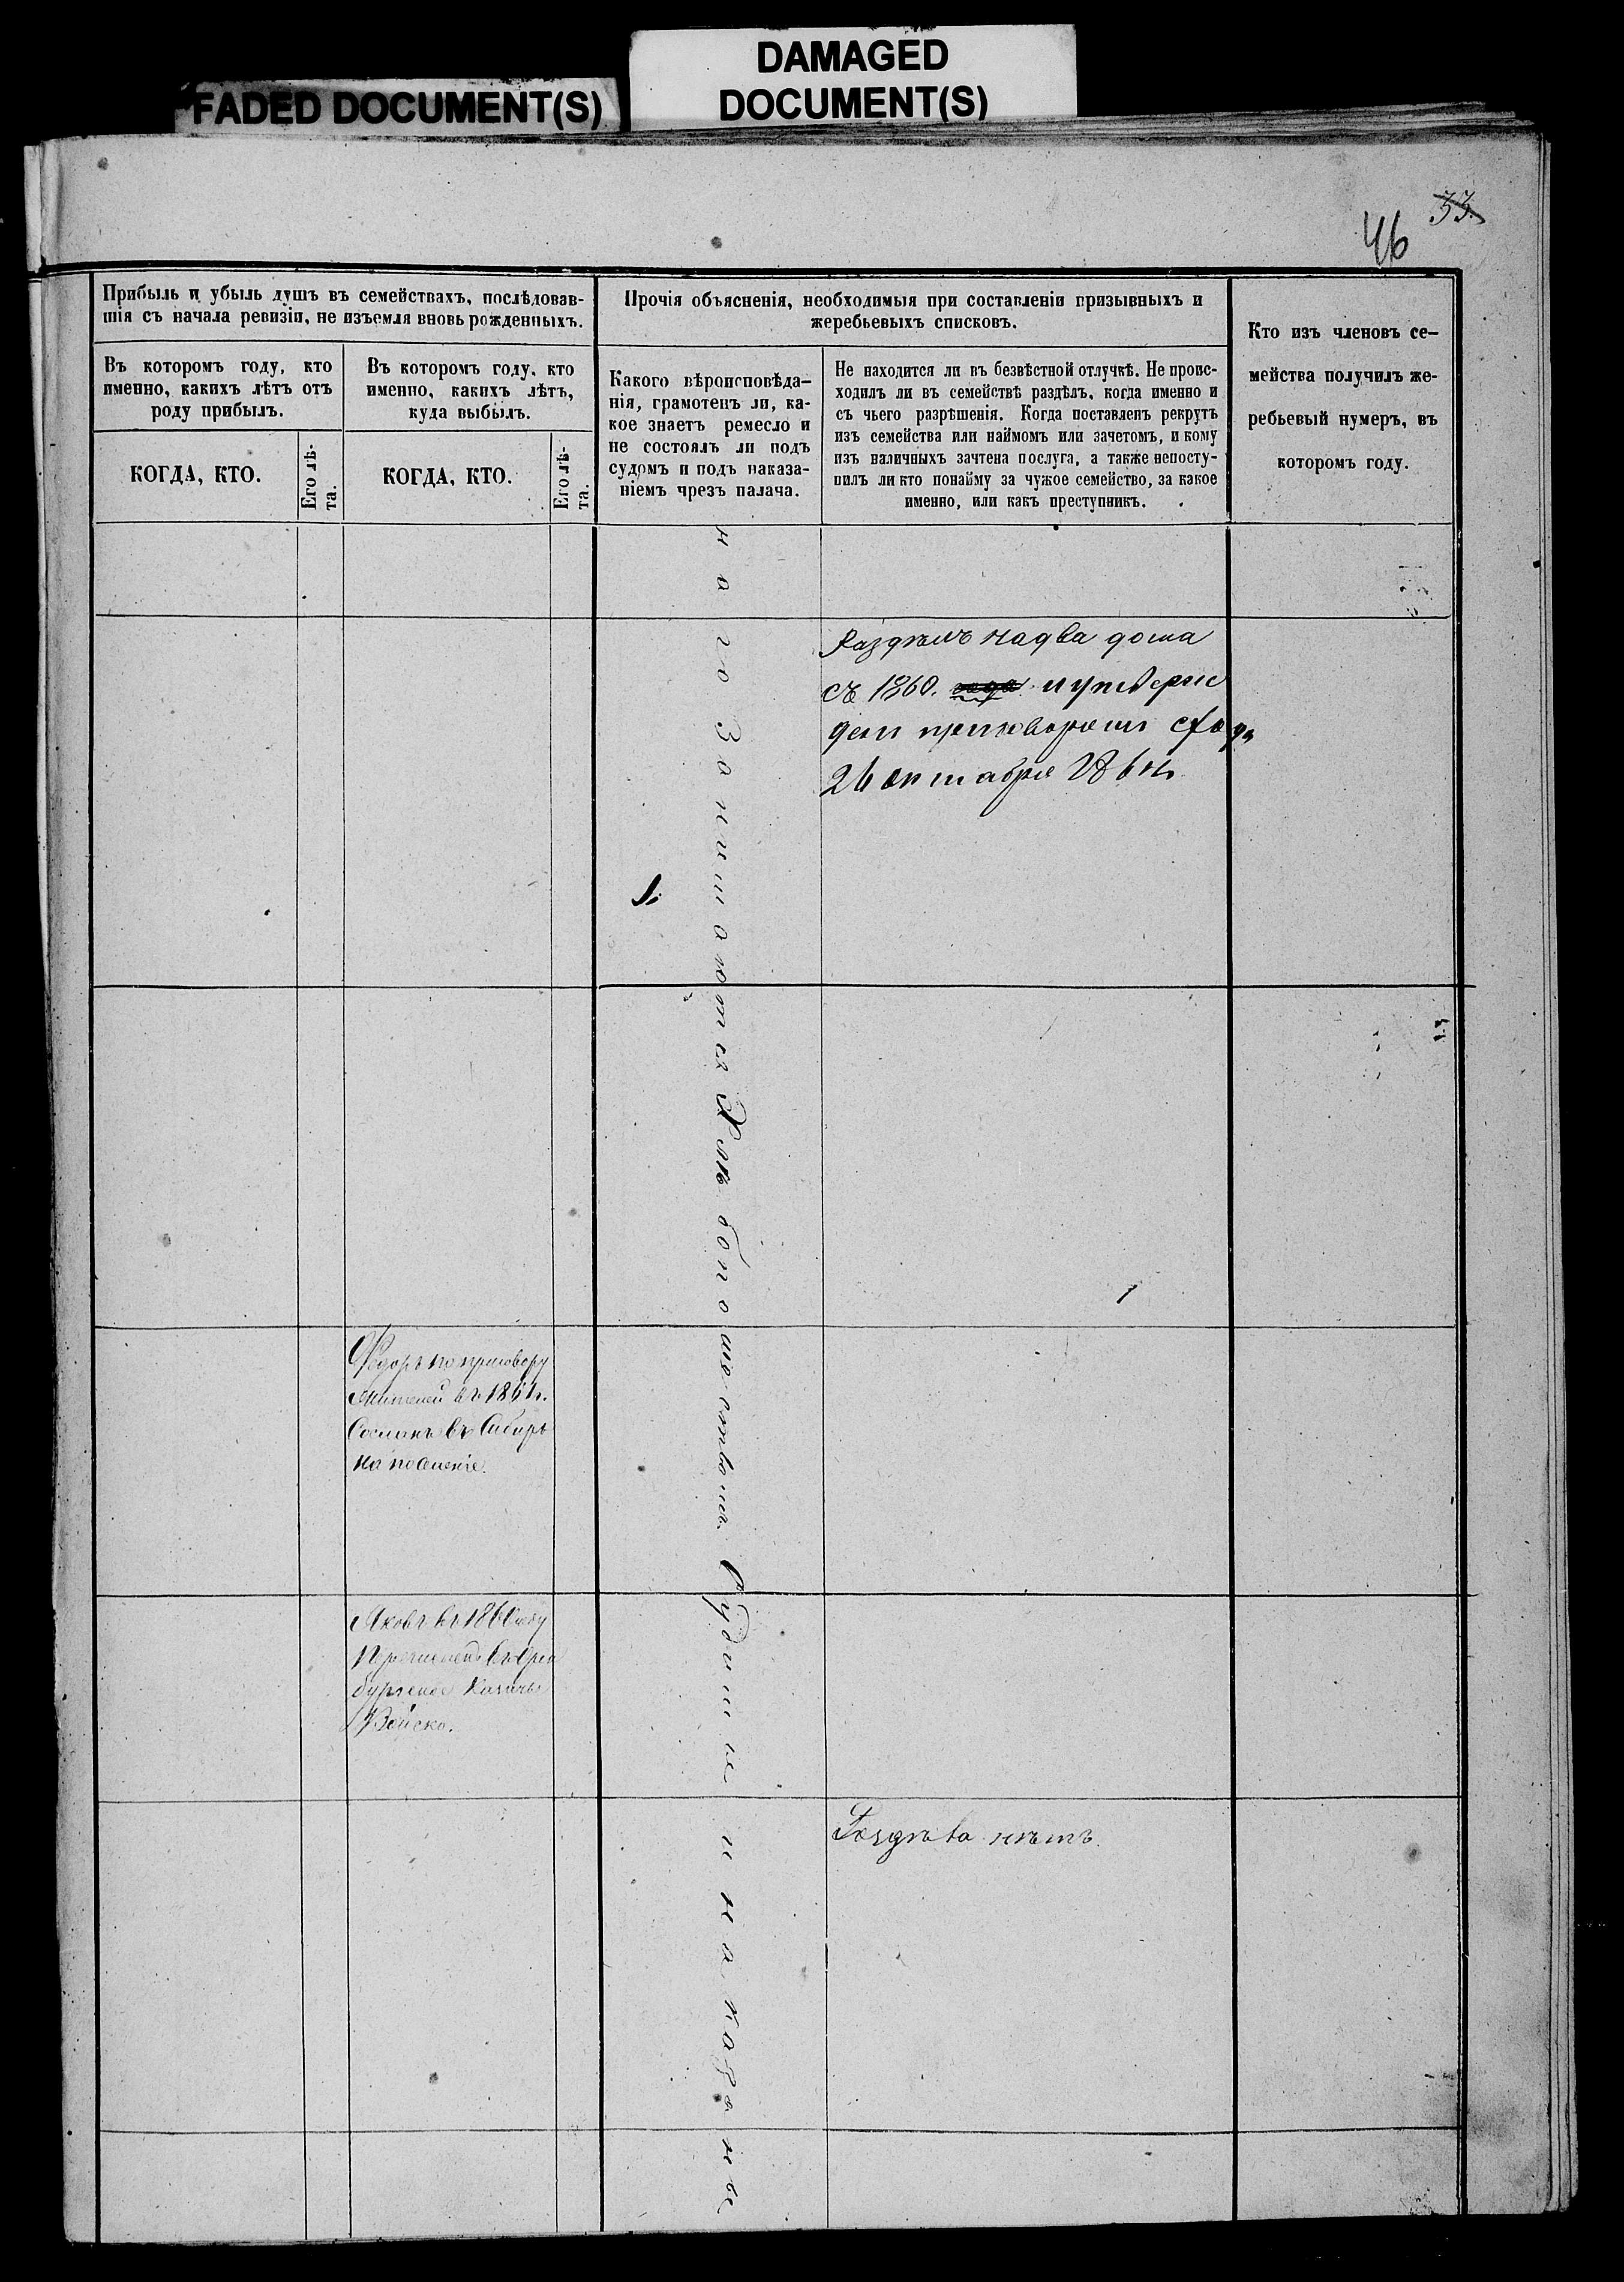 FADED DOCUMENT(S)
DAMAGED
DOCUMENT(S)
33.
46
Прибыль и убыль душъ въ семействахъ, послѣдовав-
шія съ начала ревизіи, не изъемля вновь рожденныхъ.
Въ которомъ году, кто
именно, какихъ лѣтъ отъ
роду прибылъ.
КОГДА, КТО.
Его лѣ-
та.
Въ которомъ году, кто
именно, какихъ лѣтъ,
куда выбылъ.
КОГДА, КТО.
Его лѣ-
та.
Прочія объясненія, необходимыя при составленіи призывныхъ и
жеребьевыхъ списковъ.
Какого вѣроисповѣда-
нія, грамотенъ ли, ка-
кое знаетъ ремесло и
не состоялъ ли подъ
судомъ и подъ наказа-
ніемъ чрезъ палача.
Не находится ли въ безвѣстной отлучкѣ. Не проис-
ходилъ ли въ семействѣ раздѣлъ, когда именно и
съ чьего разрѣшенія. Когда поставленъ рекрутъ
изъ семейства или наймомъ или зачетомъ, и кому
изъ наличныхъ зачтена послуга, а также непосту-
пилъ ли кто понайму за чужое семейство, за какое
именно, или какъ преступникъ.
Кто изъ членовъ се-
мейства получилъ же-
ребьевый нумеръ, въ
которомъ году.
на го Занимаются Хлѣбопашествомъ. Судимы и наказаны
Раздѣлъ на два дома
съ 1860. года и утверж
денъ приговоромъ схода
26 октября
Федоръ по приговору
жителей въ 1861 г.
Сосланъ въ Сибирь
на поселеніе.
Яковъ въ 1860 году
Перечисленъ въ Орен
бургское Казачье
Войско.
Раздѣла нѣтъ.